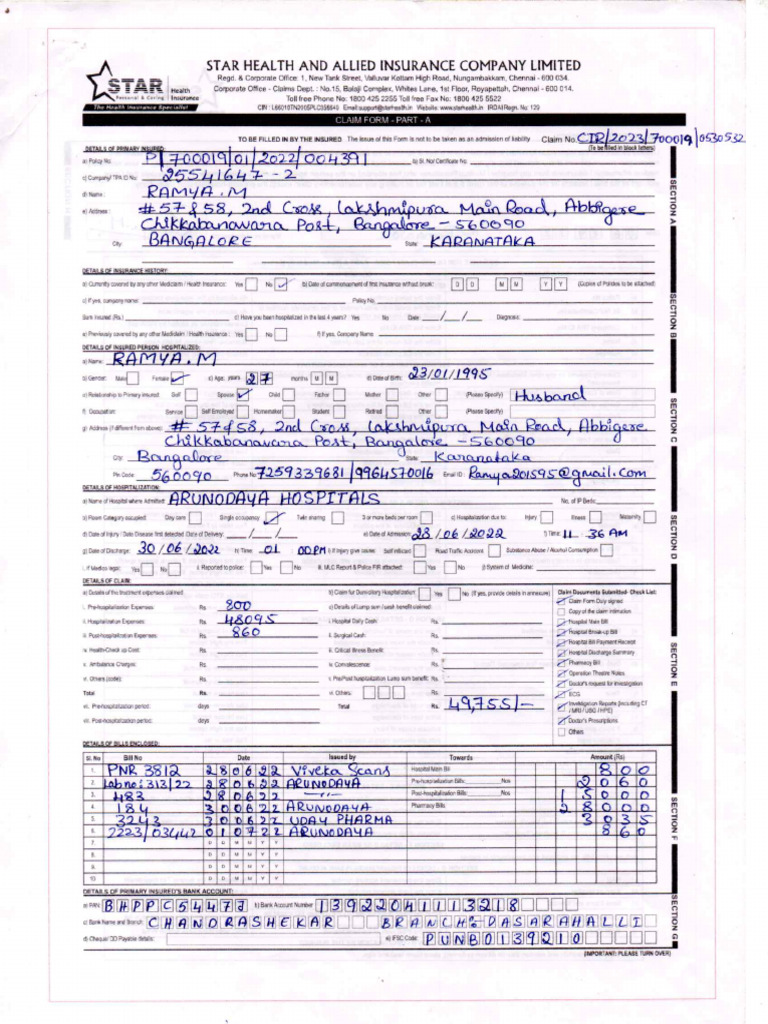 STAR HEALTH AND ALLIED INSURANCE COMPANY LIMITED
STAR Health Insurance
Personal & Caring
The Health Insurance Specialist
Regd. & Corporate Office: 1, New Tank Street, Valluvar Kottam High Road, Nungambakkam, Chennai - 600 034.
Corporate Office - Claims Dept. : No.15, Balaji Complex, Whites Lane, 1st Floor, Royapettah, Chennai - 600 014.
Toll free Phone No: 1800 425 2255 Toll free Fax No: 1800 425 5522
CLAIM FORM - PART - A
TO BE FILLED IN BY THE INSURED The issue of this Form is not to be taken as an admission of liability Claim No. CIR/2023/700019/0530532
DETAILS OF PRIMARY INSURED: (To be filled in block letters)
a) Policy No. P/700019/01/2022/004391 b) Sl. No/ Certificate No.
c) Company/ TPA ID No: 25541647-2
d) Name : RAMYA.M
e) Address : #57&58, 2nd Cross, Lakshmipura Main Road, Abbigere
Chikkabanawara Post, Bangalore - 560090
City BANGALORE State KARANATAKA
SECTION A
DETAILS OF INSURANCE HISTORY:
a) Currently covered by any other Mediclaim / Health Insurance: Yes No ✓ b) Date of commencement of first insurance without break: D D M M Y Y (Copies of Policies to be attached)
c) If yes, company name: Policy No.
Sum Insured (Rs.) c) Have you been hospitalized in the last 4 years? Yes No Date: __/__/__ Diagnosis:
e) Previously covered by any other Mediclaim / Health Insurance : Yes No f) If yes, Company Name
SECTION B
DETAILS OF INSURED PERSON HOSPITALIZED:
a) Name: RAMYA.M
b) Gender: Male Female ✓ c) Age: years 27 months M M d) Date of Birth: 23/01/1995
e) Relationship to Primary insured: Self Spouse ✓ Child Father Mother Other (Please Specify) Husband
f) Occupation: Service Self Employed Homemaker Student Retired Other (Please Specify)
g) Address (if different from above): #57&58, 2nd Cross, Lakshmipura Main Road, Abbigere
Chikkabanavara Post, Bangalore - 560090
City: Bangalore State: Karanataka
Pin Code: 560090 Phone No: 7259339681/9964570016 Email ID: Ramya201595@gmail.com
SECTION C
DETAILS OF HOSPITALIZATION:
a) Name of Hospital where Admitted: ARUNODAYA HOSPITALS No. of IP Beds:
b) Room Category occupied: Day care Single occupancy ✓ Twin sharing 3 or more beds per room c) Hospitalization due to: Injury Illness Maternity
d) Date of Injury / Date Disease first detected /Date of Delivery: __/__/__ e) Date of Admission: 28/06/2022 f) Time: 11 36 AM
g) Date of Discharge: 30/06/2022 h) Time: 01 00 PM i) If injury give cause: Self inflicted Road Traffic Accident Substance Abuse / Alcohol Consumption
i. If Medico legal: Yes No ii. Reported to police: Yes No iii. MLC Report & Police FIR attached: Yes No j) System of Medicine:
SECTION D
DETAILS OF CLAIM:
a) Details of the treatment expenses claimed b) Claim for Domiciliary Hospitalization: Yes No (If yes, provide details in annexure)
i. Pre-hospitalization Expenses Rs. 800 c) Details of Lump sum / cash benefit claimed:
ii. Hospitalization Expenses: Rs. 48095 i. Hospital Daily Cash: Rs.
iii. Post-hospitalization Expenses: Rs. 860 ii. Surgical Cash: Rs.
iv. Health-Check up Cost: Rs. iii. Critical Illness Benefit: Rs.
v. Ambulance Charges: Rs. iv. Convalescence: Rs.
vi. Others (code): Rs. v. Pre/Post hospitalization Lump sum benefit: Rs.
Total Rs. vi. Others: Rs.
vii. Pre-hospitalization period: days Total Rs. 49,755/-
viii. Post-hospitalization period: days
Claim Documents Submitted- Check List:
Claim Form Duly signed
Copy of the claim intimation
Hospital Main Bill
Hospital Break-up Bill
Hospital Bill Payment Receipt
Hospital Discharge Summary
Pharmacy Bill
Operation Theatre Notes
ECG
Doctor's request for investigation
Investigation Reports (Including CT / MRI / USG / HPE)
Doctor's Prescriptions
Others
SECTION E
DETAILS OF BILLS ENCLOSED:
Sl. No Bill No Date Issued by Towards Amount (Rs)
1. PNR 3812 280622 Viveka Scans Hospital Main Bill 800
2. Lab no: 313/22 280622 ARUNODAYA Pre-hospitalization Bills: Nos 2060
3. 483 280622 —"— Post-hospitalization Bills: Nos 15000
4. 184 300622 ARUNODAYA Pharmacy Bills 28000
5. 3243 300622 UDAY PHARMA 3035
6. 2223/03442 010722 ARUNODAYA 860
7. D D M M Y Y
8. D D M M Y Y
9. D D M M Y Y
10. D D M M Y Y
SECTION F
DETAILS OF PRIMARY INSURED'S BANK ACCOUNT:
a) PAN: BHPPC5447J b) Bank Account Number 13922041113218
c) Bank Name and Branch: CHANDRASHEKAR BRANCH: DASARAHALLI
d) Cheque/ DD Payable details: e) IFSC Code: PUNB0139210
SECTION G
(IMPORTANT: PLEASE TURN OVER)